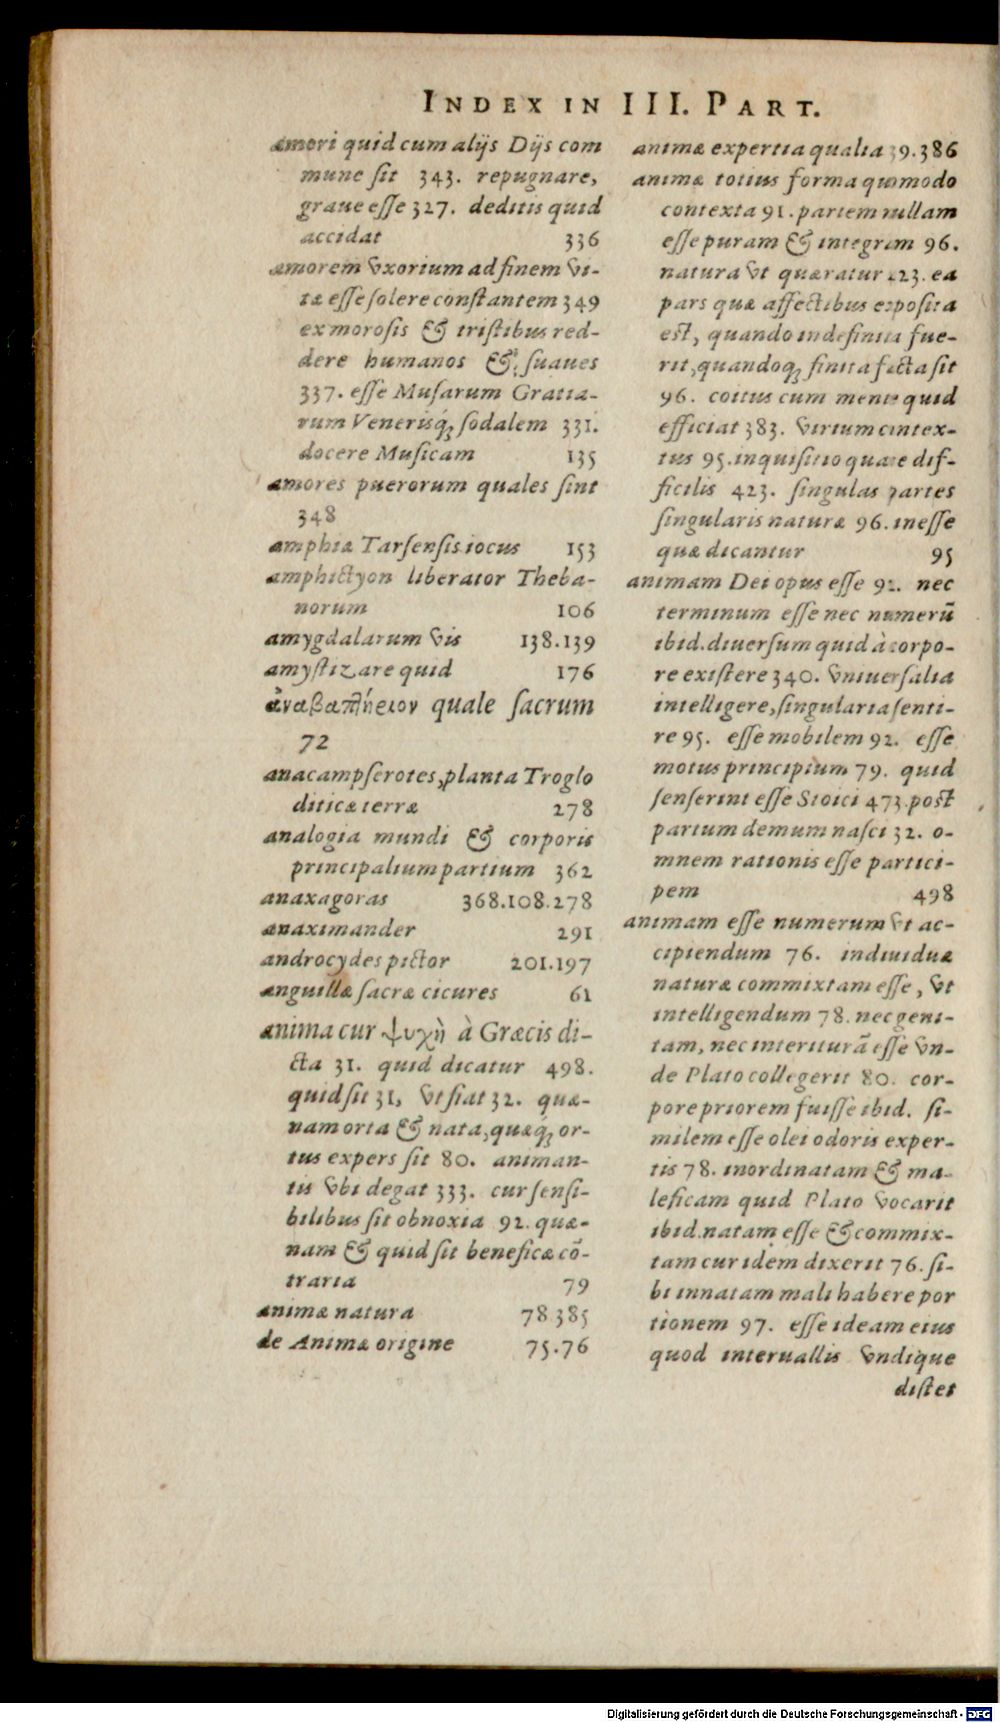 INDEX IN III. PART.
amori quid cum alijs Dijs com
mune sit 343. repugnare,
graue esse 327. deditis quid
accidat 336
amorem vxorium ad finem vi-
tæ esse solere constantem 349
ex morosis & tristibus red-
dere humanos & suaues
337. esse Musarum Gratia-
rum Venerisq́; sodalem 331.
docere Musicam 135
amores puerorum quales sint
348
amphiæ Tarsensis iocus 153
amphictyon liberator Theba-
norum 106
amygdalarum vis 138.139
amystizare quid 176
quale sacrum
72
anacampserotes, planta Troglo
diticæ terræ 278
analogia mundi & corporis
principalium partium 362
anaxagoras 368.108.278
anaximander 291
androcydes pictor 201.197
anguillæ sacræ cicures 61
anima cur ψυχὴ à Græcis di-
cta 31. quid dicatur 498.
quid sit 31, vt fiat 32. quæ-
nam orta & nata, quæq́; or-
tus expers sit 80. animan-
tis vbi degat 333. cur sensi-
bilibus sit obnoxia 92. quæ-
nam & quid sit beneficæ cō-
traria 79
animæ natura 78 385
de Animæ origine 75.76
animæ expertia qualia 39.386
animæ totius forma quomodo
contexta 91. partem nullam
esse puram & integram 96.
natura vt quæratur 423. ea
pars quæ affectibus exposita
est, quando indefinita fue-
rit, quandoq; finita facta sit
96. coitus cum mente quid
efficiat 383. virium contex-
tus 95. inquisitio quare dif-
ficilis 423. singulas partes
singularis naturæ 96. inesse
quæ dicantur 95
animam Dei opus esse 92. nec
terminum esse nec numerū
ibid. diuersum quid à corpo-
re existere 340. vniuersalia
intelligere, singularia senti-
re 95. esse mobilem 92. esse
motus principium 79. quid
senserint esse Stoici 473. post
partum demum nasci 32. o-
mnem rationis esse partici-
pem 498
animam esse numerum vt ac-
cipiendum 76. indiuiduæ
naturæ commixtam esse, vt
intelligendum 78. nec geni-
tam, nec interiturā esse vn-
de Plato collegerit 80. cor-
pore priorem fuisse ibid. si-
milem esse olei odoris exper-
tis 78. inordinatam & ma-
leficam quid Plato vocarit
ibid. natam esse & commix-
tam cur idem dixerit 76. si-
bi innatam mali habere por
tionem 97. esse ideam eius
quod interuallis vndique
distet
Digitalisierung gefördert durch die Deutsche Forschungsgemeinschaft - DFG